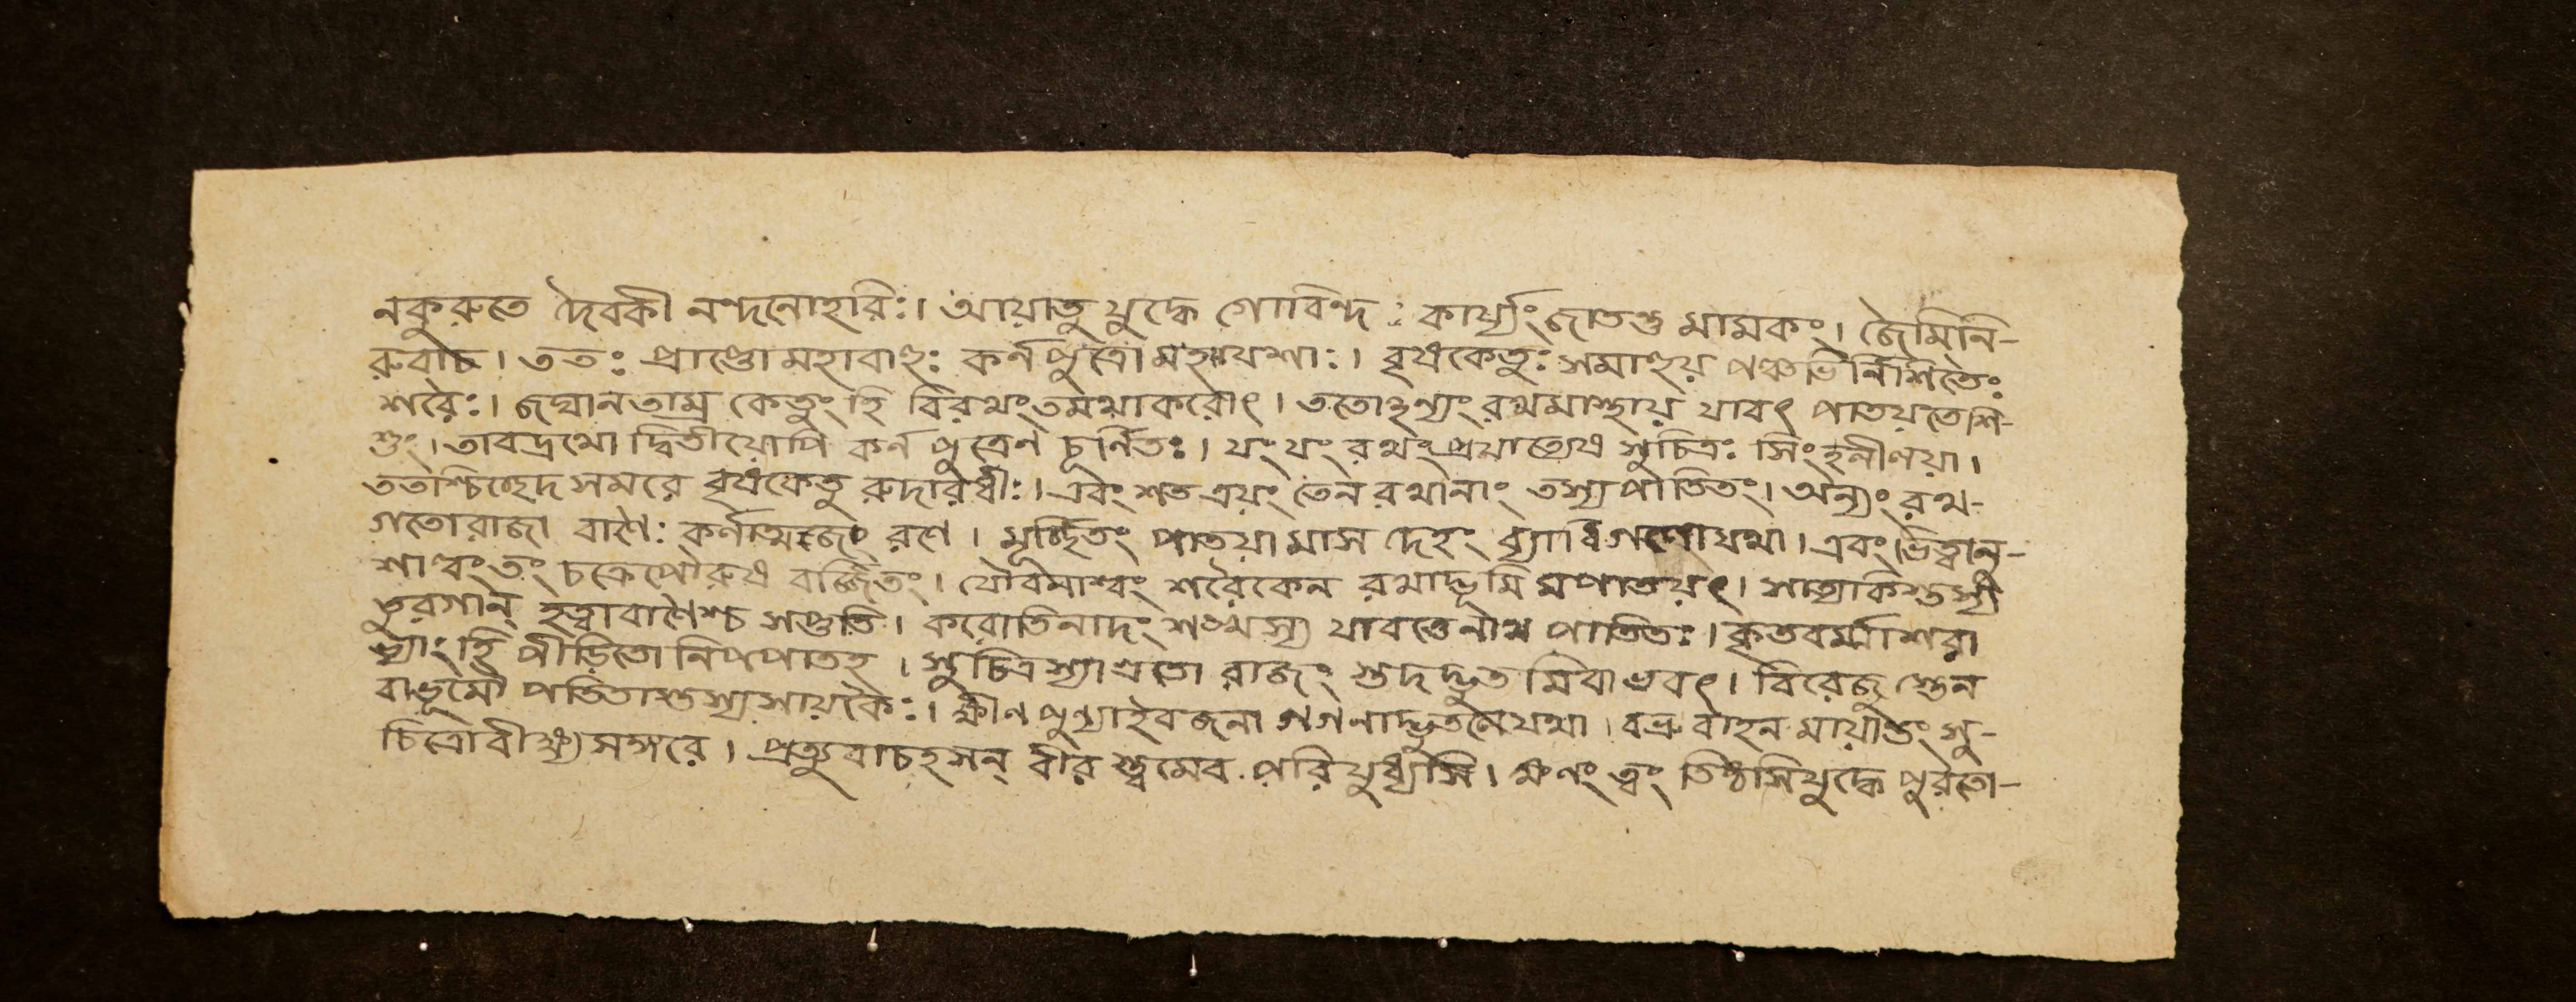 নকুরুতে দৈবকী নন্দনোহরিঃ। আয়াতু যুদ্ধে গোবিন্দঃ কার্য্যংজাতন্তু মামকং। জৈমিনি-
রুবাচ। ততঃ প্রাপ্তো মহাবাহুঃ কর্নপুত্রো মহাযশাঃ। বৃষকেতুঃ সমাহূয় পঞ্চভির্নিশিতৈঃ
শরৈঃ। জঘানতাম্র কেতুং হি বিরথং তমথাকরোৎ। ততোহন্যং রথমাস্থায় যাবৎ পাতয়তেশি-
শুং। তাবদ্রথো দ্বিতীয়োপি কর্ন পুত্রেণ চূর্নিতঃ। যং যং রথং প্রয়াত্যেষ সুচিত্রঃ সিংহনীণয়া।
ততশ্চিচ্ছেদ সমরে বৃষকেতু রুদারধীঃ। এবং শত ত্রয়ং তেন রথানাং তস্য পাতিতং। অন্যং রথ-
গতোরাজা বাণৈঃ কর্নাত্মজং রণে। মূর্চ্ছিতং পাতয়ামাস দেহং ব্যাধিগণো যথা। এবং ভিত্বানু-
শাল্বং তং চক্রে পৌরুষ বর্জ্জিতং। যৌবনাশ্বং শরৈকেন রথাদ্ভূমি মপাতয়ৎ। সাত্যকিস্তস্য
তুরগান্ হত্বাবাণৈশ্চ সপ্ততি। করোতিনাদং শঙ্খস্য যাবত্তেনাথ পাতিতঃ। কৃতবর্ম্মাশরা
ভ্যাং হি পীড়িতো নিপপাতহ। সুচিত্রস্যাগ্রতো রাজং স্তদদ্ভুত মিবাভবৎ। বিরেজু স্তেন
বাভূমৌ পতিতাস্তস্যসায়কৈঃ। ক্ষীণ পুণ্যাইবজনা গগণাদ্ভুতলে যথা। বভ্রু বাহন মায়ান্তং সু-
চিত্রোবীক্ষ্য সঙ্গরে। প্রত্যুবাচহসন্ বীর স্ত্বমেব পরিযুধ্যসি। ক্ষণং ত্বং তিষ্ঠসিযুদ্ধে পুরতো-